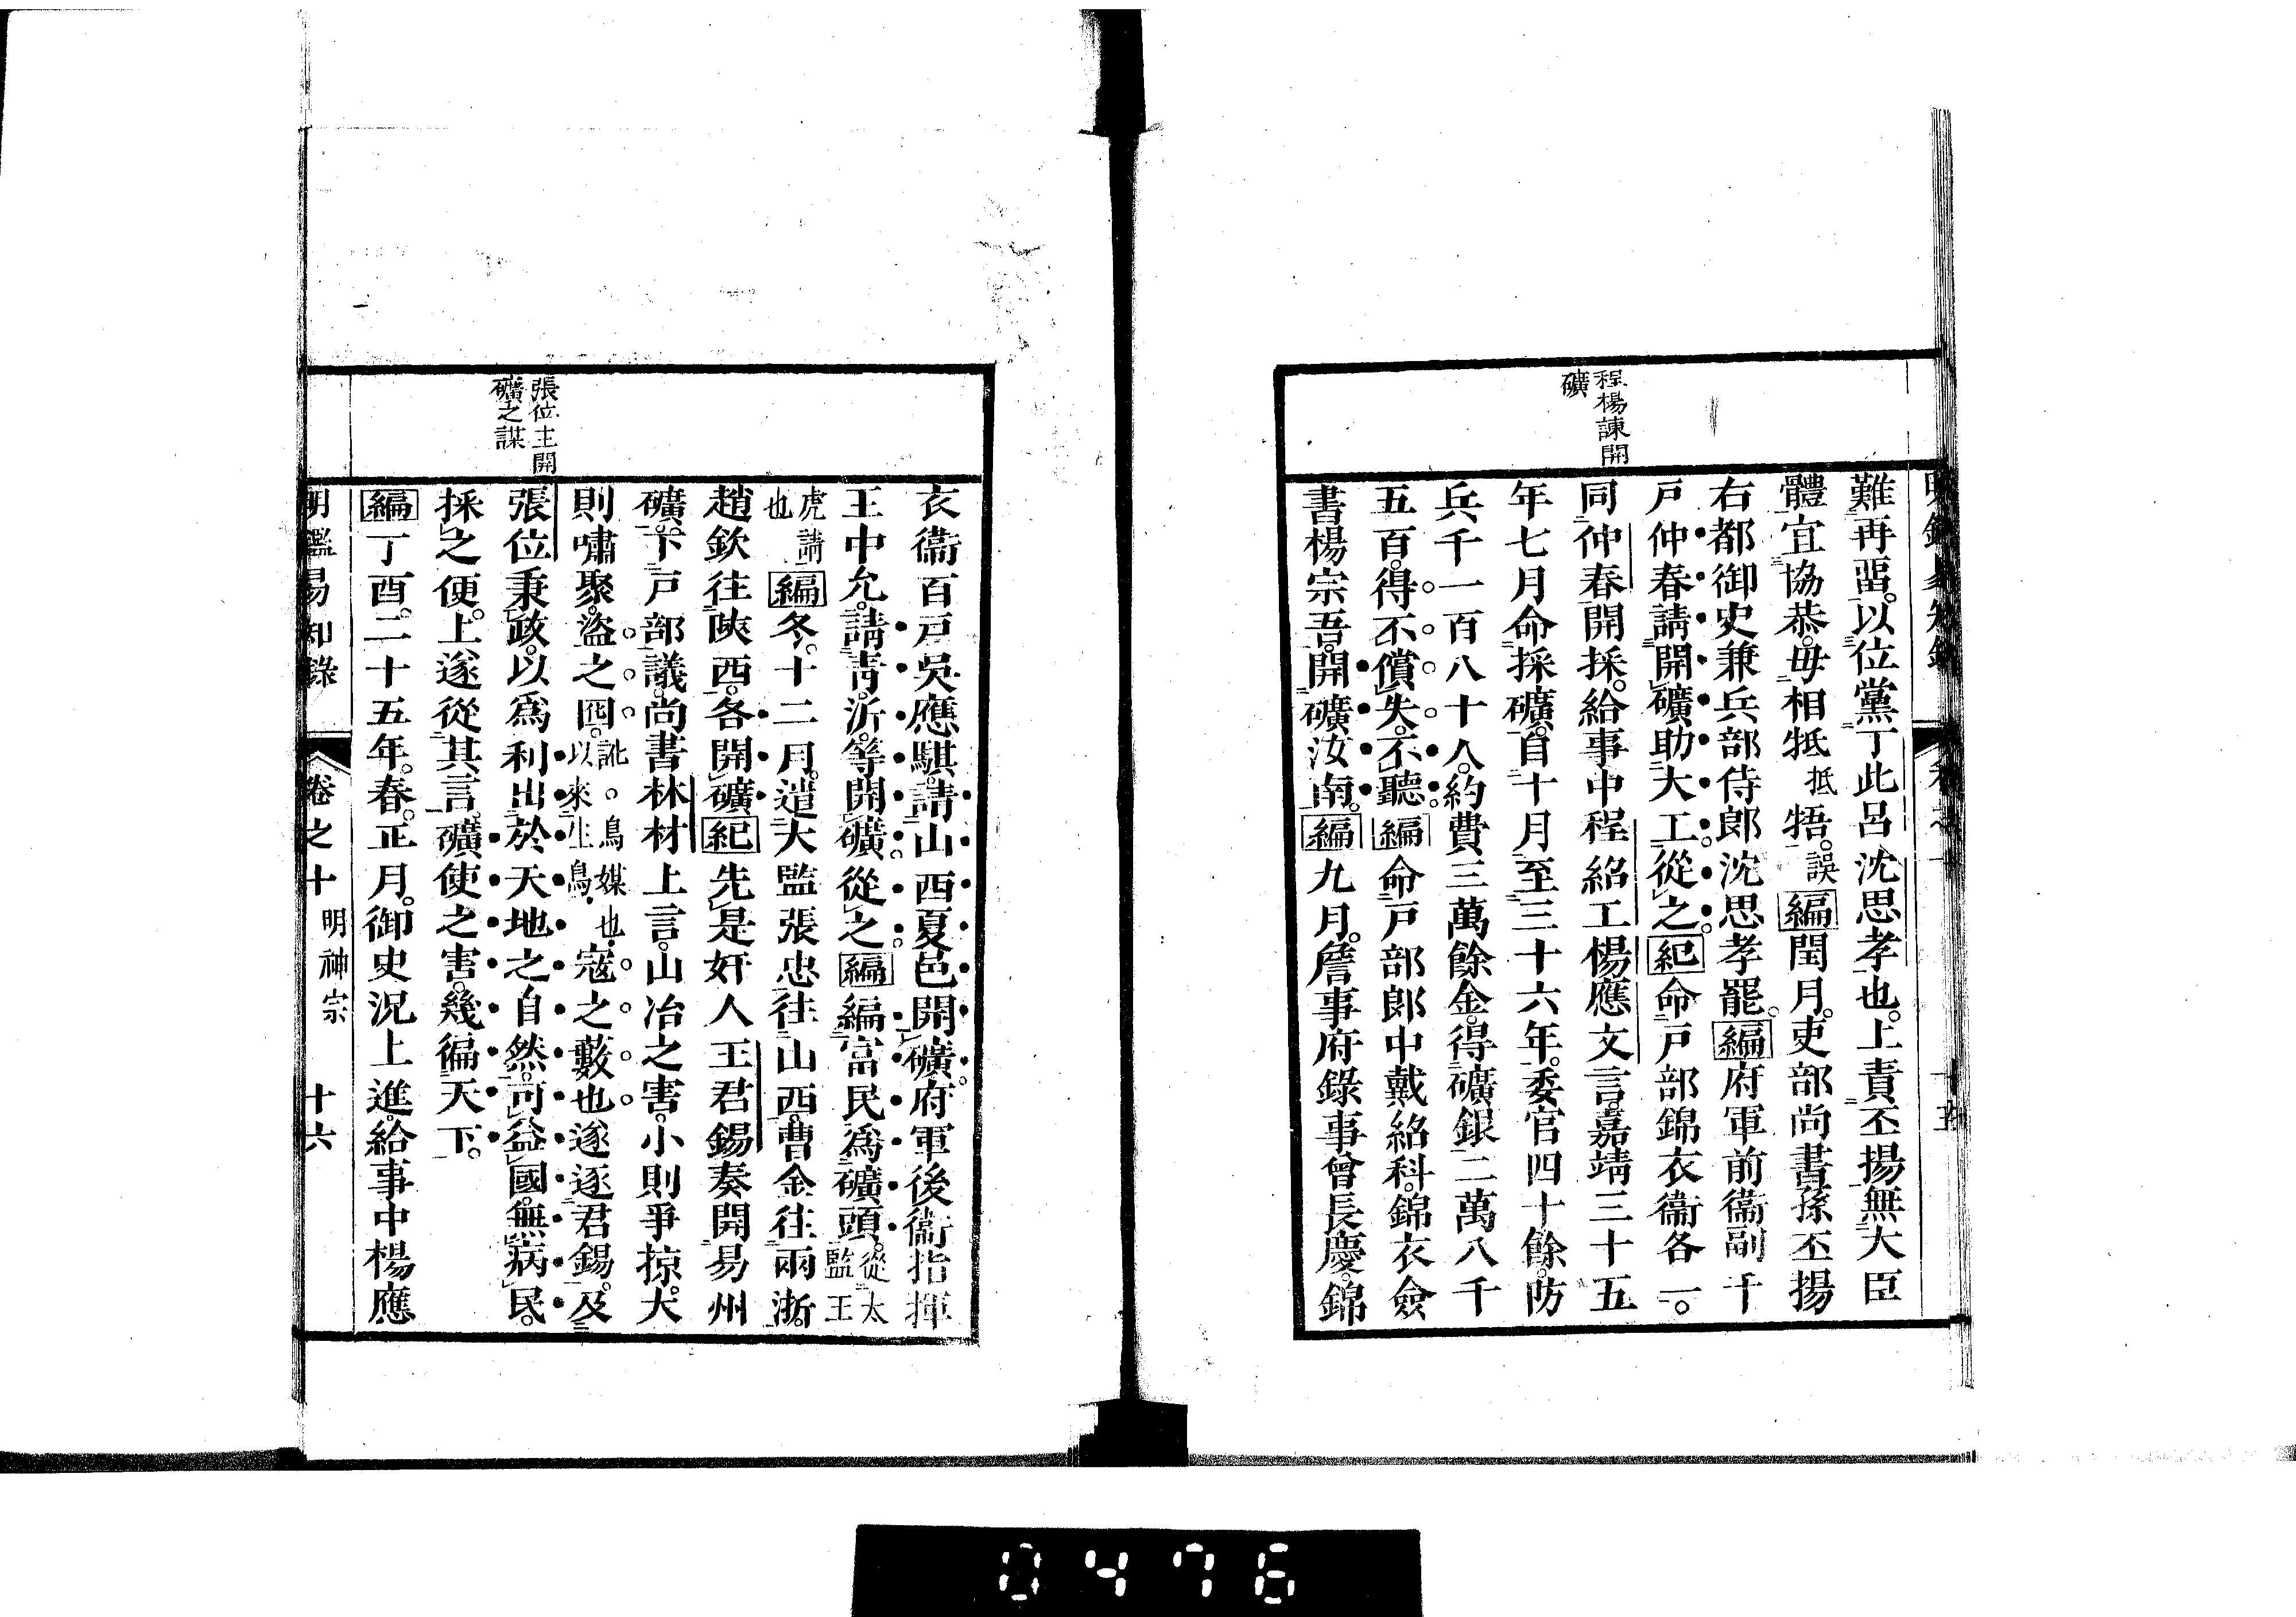 程楊諫開
礦
難再畱。以位黨丁此呂沈思孝也。上責丕揚無大臣
體宜協恭。毋相牴抵牾。誤編閏月。吏部尚書孫丕揚
右都御史兼兵部侍郎沈思孝罷。編府軍前衞副千
戸仲春請開礦助大工。從之。紀命戸部錦衣衞各一。
同仲春開採。給事中程紹工楊應文言嘉靖三十五
年七月命採礦。自十月至三十六年。委官四十餘。防
兵千一百八十人。約費三萬餘金。得礦銀二萬八千
五百。得不償失。不聽。編命戸部郎中戴紹科。錦衣僉
書楊宗吾。開礦汝南。編九月。詹事府錄事曾長慶。錦
十五
張位主開
礦之謀
衣衞百戸吳應騏。請山西夏邑開礦。府軍後衞指揮
王中允。請青。沂。等開礦。從之。編編富民爲礦頭。從太監王
虎請也編冬。十二月。遣大監張忠往山西。曹金往兩浙。
趙欽往陝西。各開礦紀先是奸人王君錫奏開易州
礦。下戸部議。尚書林材上言。山冶之害。小則爭掠。大
則嘯聚。盜之囮。訛。鳥媒也。以來生鳥。寇之藪也。遂逐君錫。及
張位秉政。以爲利出於天地之自然。可益國。無病民。
採之便。上遂從其言。礦使之害。幾徧天下。
編丁酉。二十五年。春。正月。御史況上進。給事中楊應
明鑑易知錄 卷之十 明神宗 十六
0476